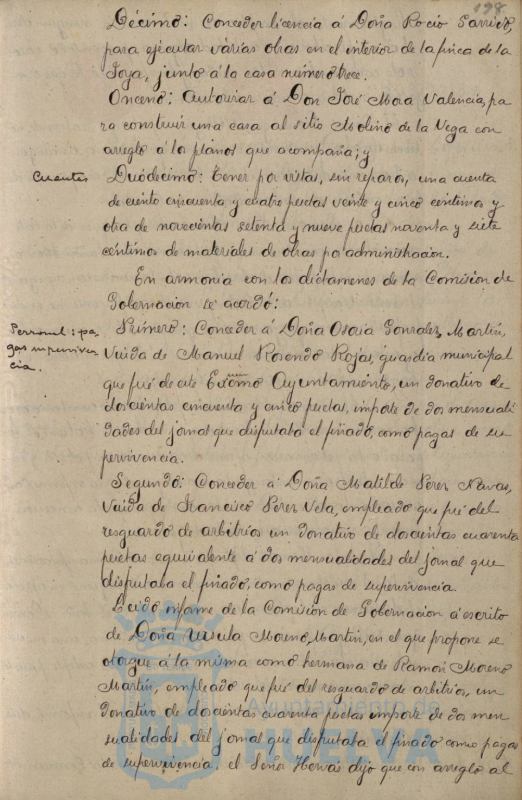 198
Décimo: Conceder licencia á Doña Rocio Garrido,
para ejecutar várias obras en el interior de la finca de la
Joya, junto á la casa número trece.
Onceno: Autorizar á Don José Mora Valencia, pa
ra construir una casa al sitio Molino de la Vega con
arreglo á la planos que acompaña; y
Cuentas
Duodécimo: Tener por vistas, sin reparos, una cuenta
de ciento cincuenta y cuatro pesetas veinte y cinco centimos y
otra de novecientas setenta y nueve pesetas noventa y siete
centimos de materiales de obras po administracion.
En armonia con los dictamenes de la Comision de
Gobernacion se acordó:
Personal: pa,
gas superviven
cia.
Primero: Conceder á Doña Osoria Gonzalez Martin,
Viuda de Manuel Rosendo Rojas, guardia municipal
que fué de este Excmo Ayuntamiento, un donativo de
doscientas cincuenta y cinco pesetas, importe de dos mensuali
dades del jornal que disfrutaba el finado, como pagas de su
pervivencia.
Segundo: Conceder á Doña Matilde Perez Navas,
Viuda de Francisco Perez Vela, empleado que fué del
resguardo de arbitrios un donativo de doscientas cuarenta
pesetas equivalente á dos mensualidades del jornal que
disfrutaba el finado, como pagas de supervivencia.
Leido informe de la Comision de Gobernacion á escrito
de Doña Ursula Moreno Martin, en el que propone se
otorgue á la misma como hermana de Ramón Moreno
Martin, empleado que fué del resguardo de arbitrios, un
donativo de doscientas cuarenta pesetas importe de dos men
sualidades del jornal que disfrutaba el finado como pagas
de supervivencia, el Señor Hervás dijo que con arreglo al
Ayuntamiento de
HUELVA